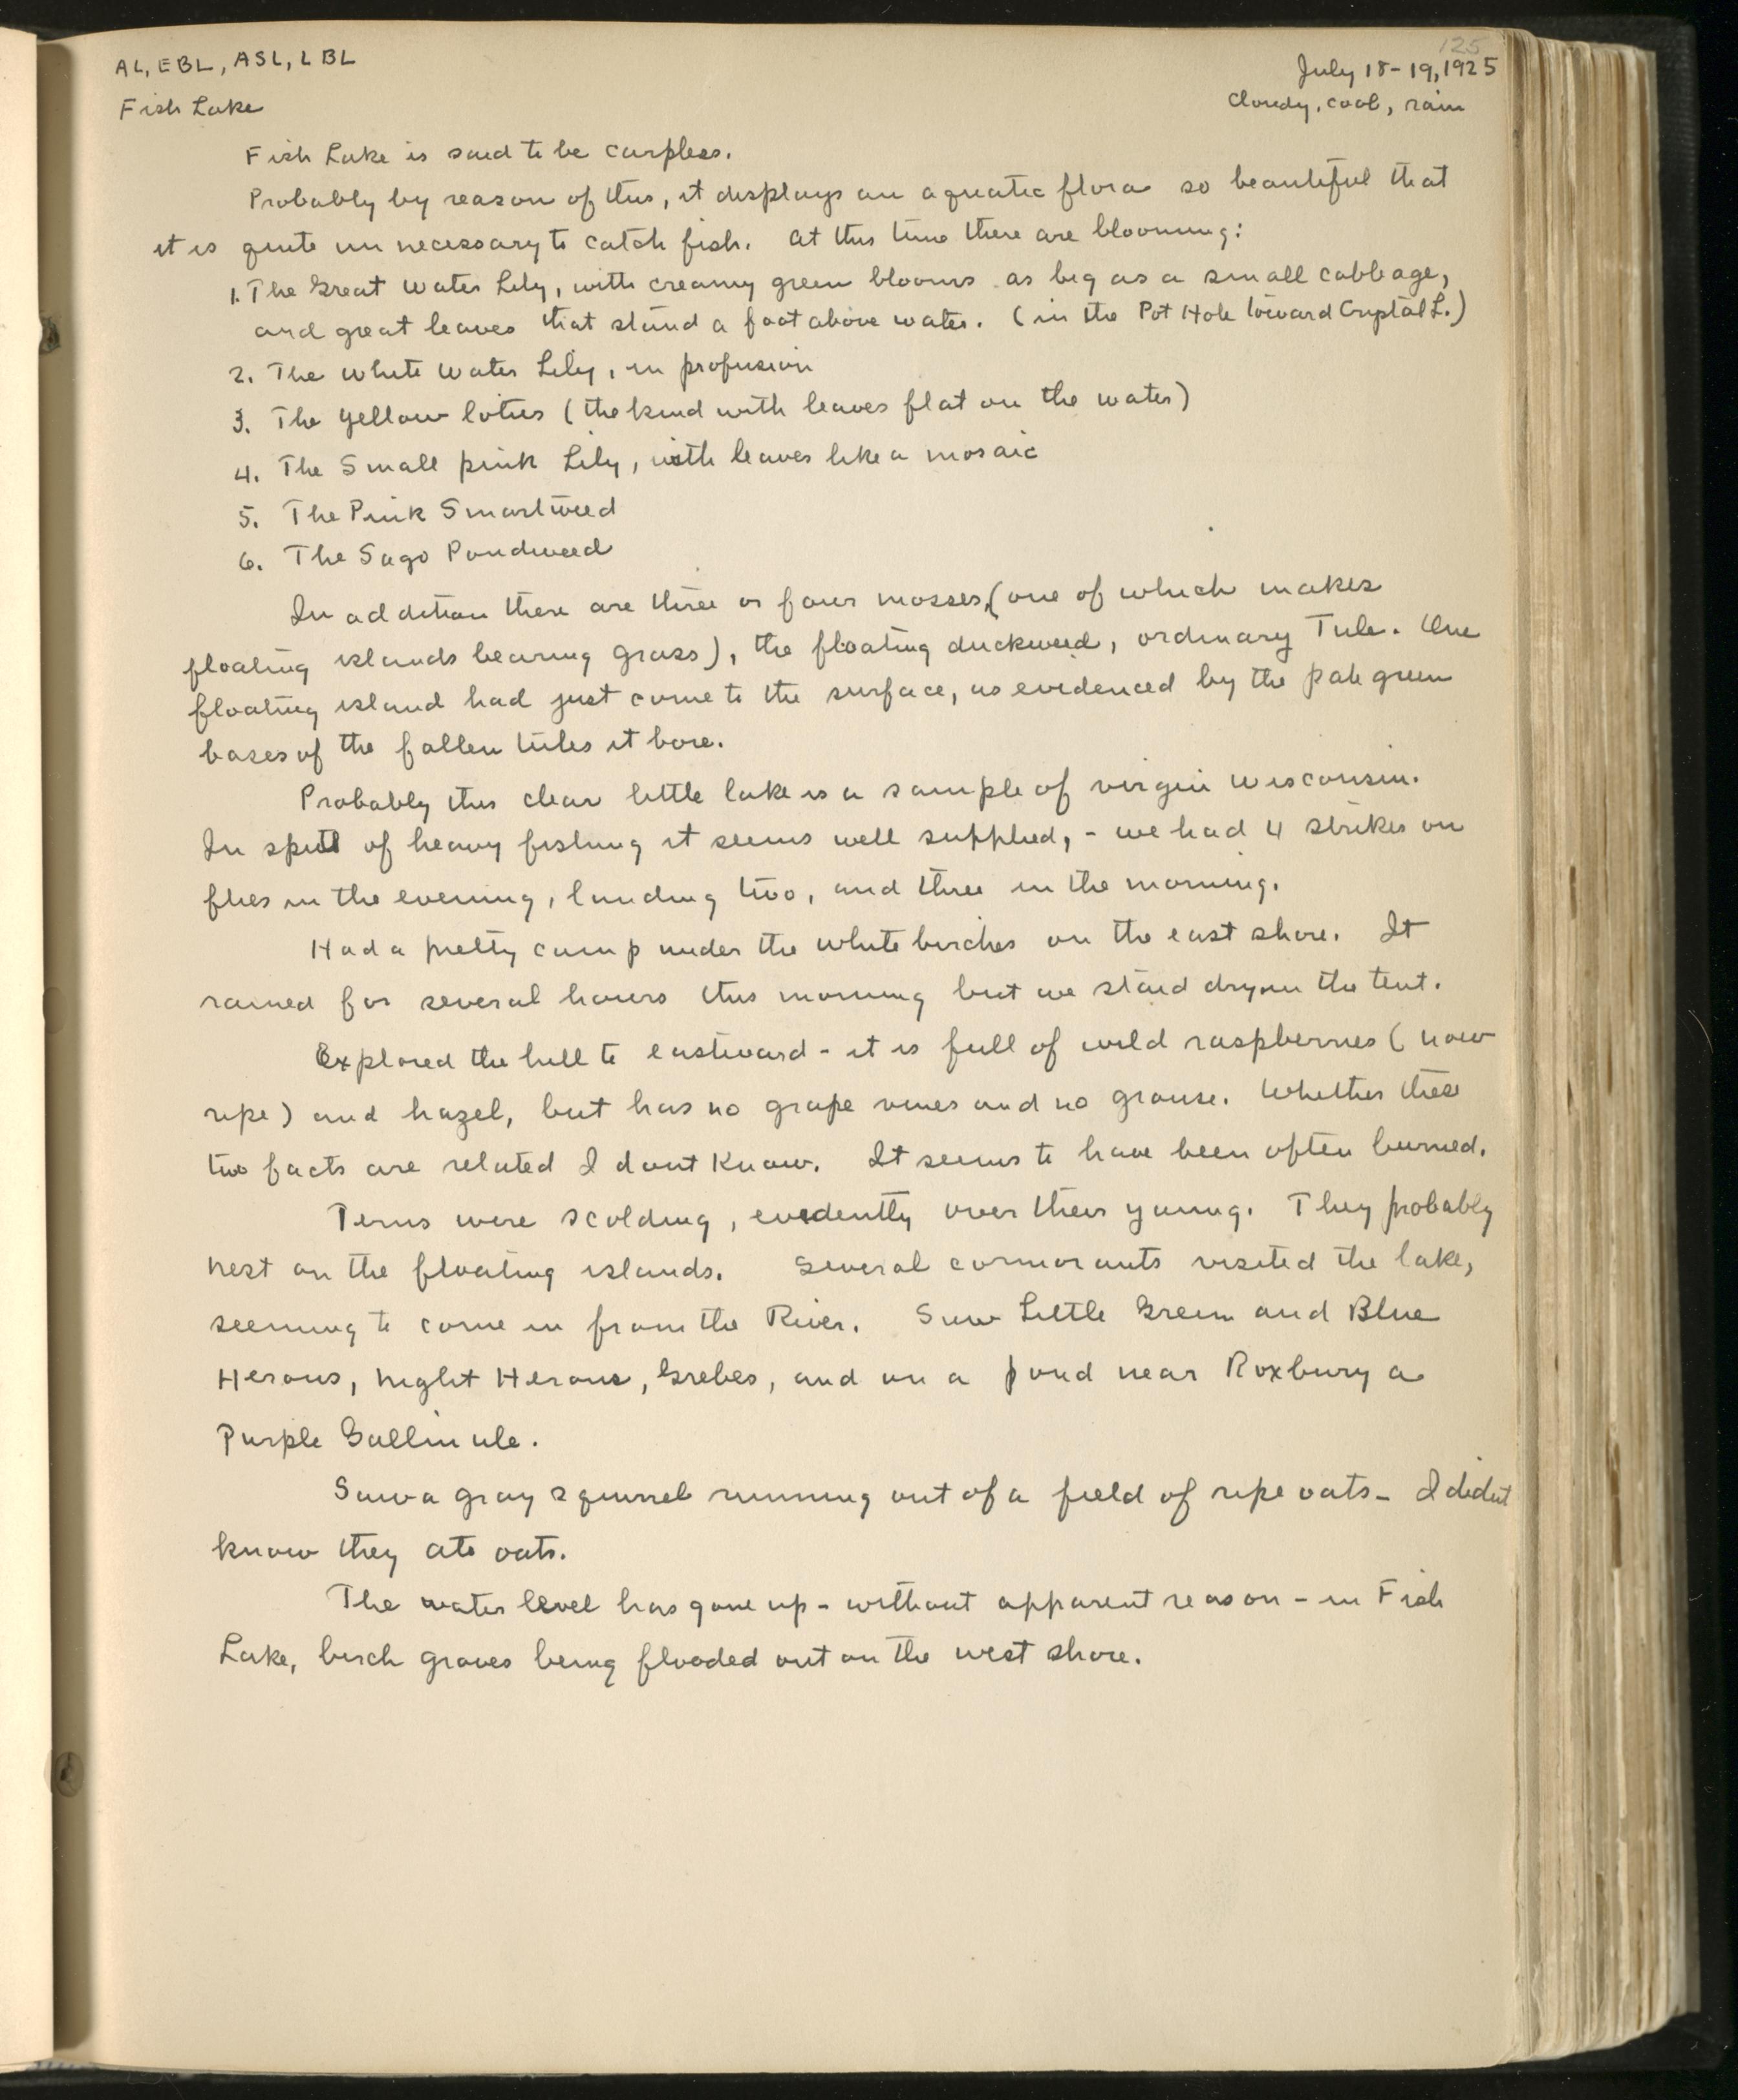 125
AL, EBL, ASL, LBL
July 18-19, 1925
Fish Lake
Cloudy, cool, rain
Fish Lake is said to be carpless.
Probably by reason of this, it displays an aquatic flora so beautiful that
it is quite unnecessary to catch fish. At this time there are blooming:
1. The Great Water Lily, with creamy green blooms as big as a small cabbage,
and great leaves that stand a foot above water. (in the Pot Hole toward Crystal L.)
2. The White Water Lily, in profusion
3. The Yellow lotus (the kind with leaves flat on the water)
4. The Small pink Lily, with leaves like a mosaic
5. The Pink Smartweed
6. The Sago Pondweed
In addition there are three or four mosses, (one of which makes
floating islands bearing grass), the floating duckweed, ordinary Tule. One
floating island had just come to the surface, as evidenced by the pale green
bases of the fallen tules it bore.
Probably this clear little lake is a sample of virgin Wisconsin.
In spite of heavy fishing it seems well supplied, - we had 4 strikes on
flies in the evening, landing two, and three in the morning.
Had a pretty camp under the white birches on the east shore. It
rained for several hours this morning but we staid dry in the tent.
Explored the hill to eastward - it is full of wild raspberries (now
ripe) and hazel, but has no grape vines and no grouse. Whether these
two facts are related I dont know. It seems to have been often burned.
Terns were scolding, evidently over their young. They probably
nest on the floating islands. Several cormorants visited the lake,
seeming to come in from the River. Saw Little Green and Blue
Herons, Night Herons, Grebes, and on a pond near Roxbury a
Purple Gallinule.
Saw a gray squirrel running out of a field of ripe oats - I didnt
know they ate oats.
The water level has gone up - without apparent reason - in Fish
Lake, birch groves being flooded out on the west shore.